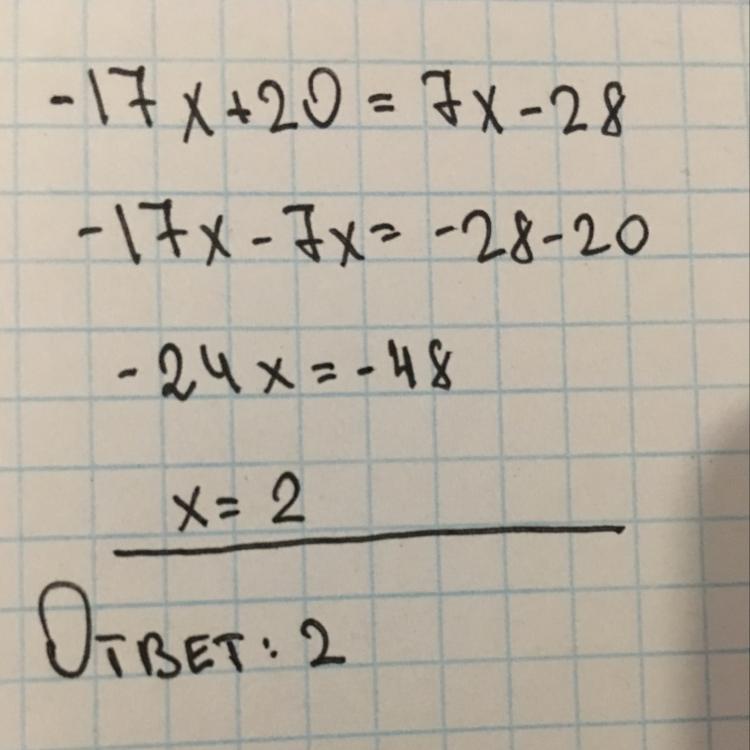 -17x+20=7x-28
-17x-7x=-28-20
-24x=-48
x=2
Ответ: 2